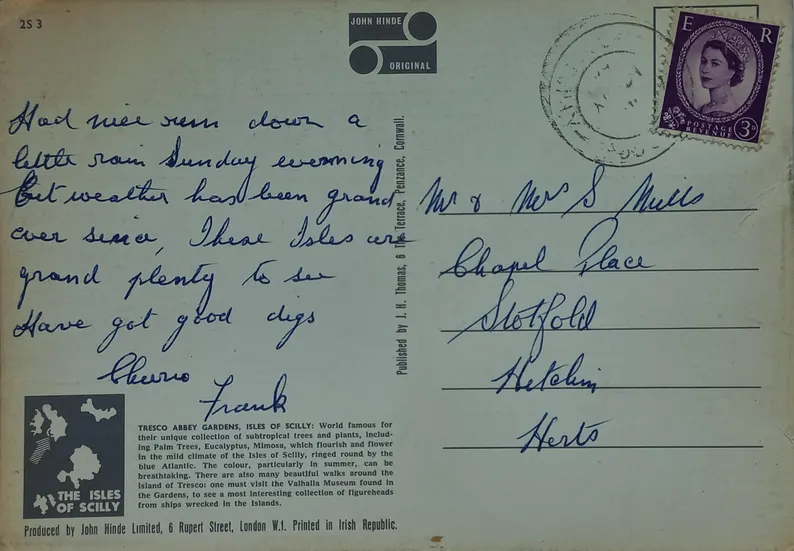 2S 3
JOHN HINDE
ORIGINAL
E R
POSTAGE
REVENUE
3D
Had nice run down a
little rain Sunday evenning
But weather has been grand
ever since, These Isles are
grand plenty to see
Have got good digs
Cheerio
Frank
Published by J. H. Thomas, 6 The Terrace, Penzance, Cornwall.
Mr & Mrs S Mills
Chapel Place
Stotfold
Hitchin
Herts
THE ISLES
OF SCILLY
TRESCO ABBEY GARDENS, ISLES OF SCILLY: World famous for
their unique collection of subtropical trees and plants, includ-
ing Palm Trees, Eucalyptus, Mimosa, which flourish and flower
in the mild climate of the Isles of Scilly, ringed round by the
blue Atlantic. The colour, particularly in summer, can be
breathtaking. There are also many beautiful walks around the
island of Tresco: one must visit the Valhalla Museum found in
the Gardens, to see a most interesting collection of figureheads
from ships wrecked in the Islands.
Produced by John Hinde Limited, 6 Rupert Street, London W.1. Printed in Irish Republic.